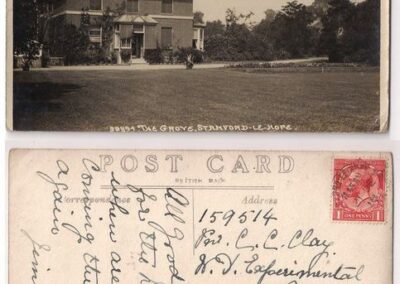 THE GROVE, STANFORD-LE-HOPE.
POST CARD
BRITISH MADE
Correspondence
Address
All good
for the
when are
coming thi
again Jim
159514
Pvt. C. C. Clay
W. D. Experimental
ONE PENNY